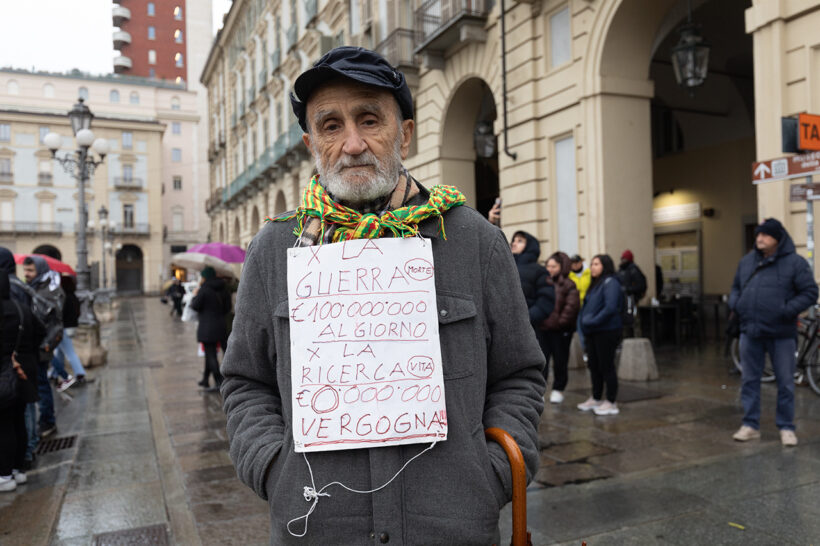 X LA
GUERRA MORTE
€100'000'000
AL GIORNO
X LA
RICERCA VITA
€0'000'000
VERGOGNA!!!